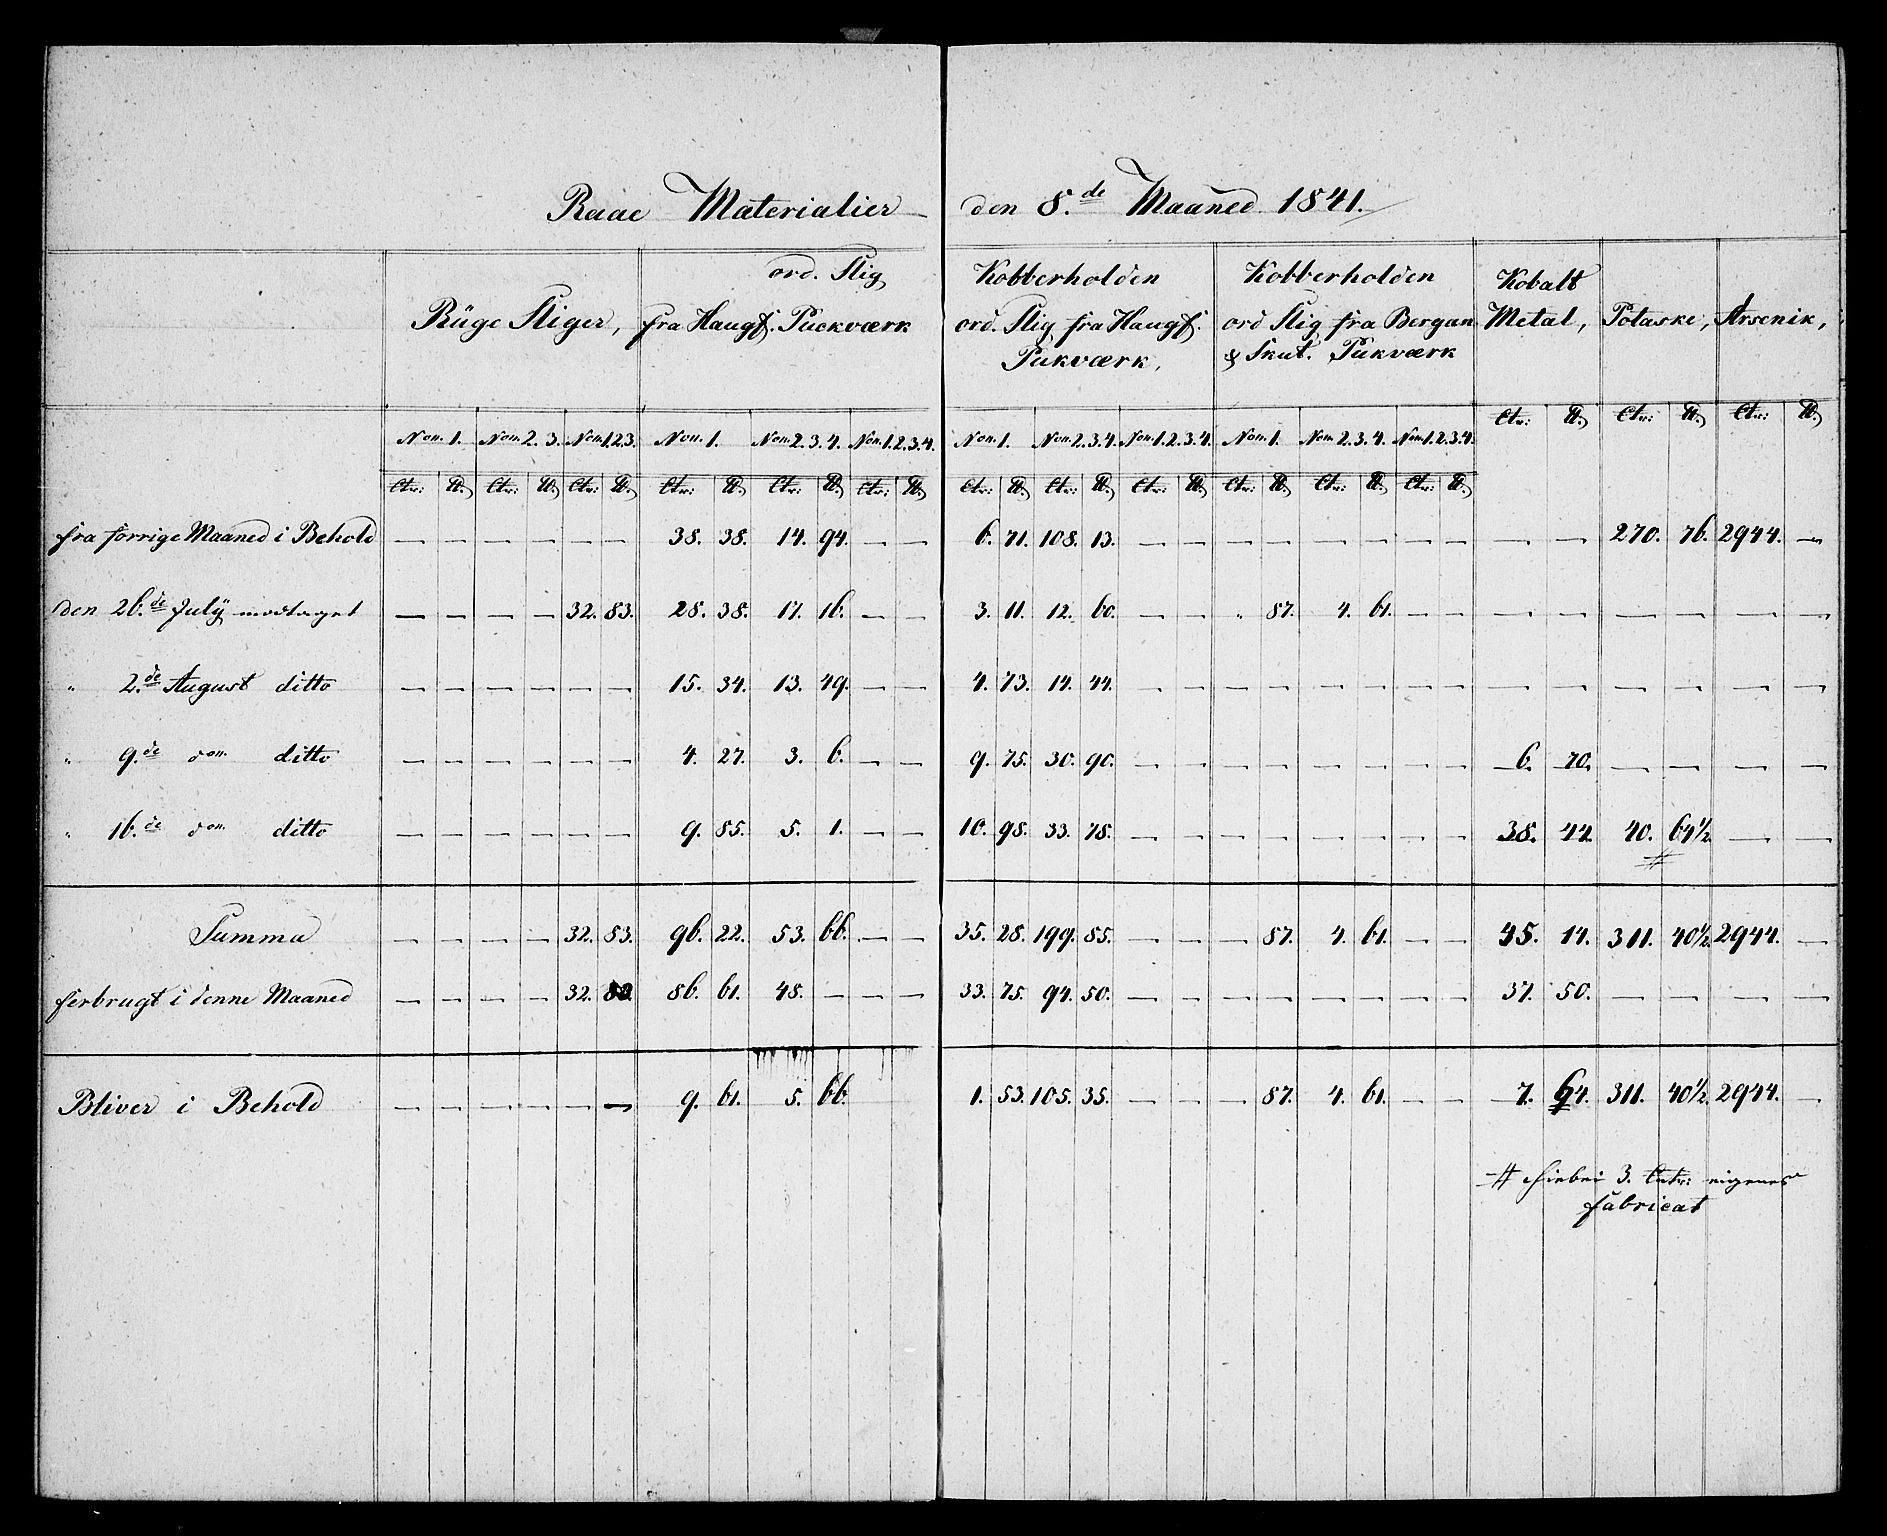 Raae Materialier den 8.de Maaned 1841.
Rüge Sliger, ord. Slig fra Haugf. Puckværk Kobberholden ord. Slig fra Haugf. Pukværk, Kobberholden ord Slig fra Bergan & Skut. Pukværk Kobalt Metal, Potaske, Arsenik,
Non. 1. Non. 2. 3. Non. 1.2.3. Non. 1. Non. 2. 3. 4. Non. 1. 2. 3. 4. Non. 1. Non. 2. 3. 4. Non. 1. 2. 3. 4. Non. 1. Non. 2. 3. 4. Non. 1. 2. 3. 4. Ctr: ℔ Ctr: ℔ Ctr: ℔
Ctr: ℔ Ctr: ℔ Ctr: ℔ Ctr: ℔ Ctr: ℔ Ctr: ℔ Ctr: ℔ Ctr: ℔ Ctr: ℔ Ctr: ℔ Ctr: ℔ Ctr: ℔
fra forrige Maaned i Behold — — — — — — 38. 38. 14. 94. — — 6. 71. 108. 13. — — — — — — — — — — 270. 76. 2944. —
den 26.de July modtaget — — — — 32. 83. 28. 38. 17. 16. — — 3. 11. 12. 60. — — " 87. 4. 61. — — — — — — — —
" 2.de August ditto — — — — — — 15. 34. 13. 49. — — 4. 73. 14. 44. — — — — — — — — — — — — — —
" 9.de don ditto — — — — — — 4. 27. 3. 6. — — 9. 75. 30. 90. — — — — — — — — 6. 70. — — — —
" 16.de don ditto — — — — — — 9. 85. 5. 1. — — 10. 98. 33. 78. — — — — — — — — 38. 44. 40. 64½ — —
#
Summa — — — — 32. 83. 96. 22. 53. 66. — — 35. 28. 199. 85. — — — 87. 4. 61. — — 45. 14. 311. 40½. 2944. —
forbrugt i denne Maaned — — — — 32. 83. 86. 61. 48. — — — 33. 75. 94. 50. — — — — — — — — 37. 50. — — — —
Bliver i Behold — — — — — — 9. 61. 5. 66. 1. 53. 105. 35. — — — 87. 4. 61. — — 7. 64. 311. 40½. 2944. —
# hiebei 3. Cntr: eigenes
fabricat